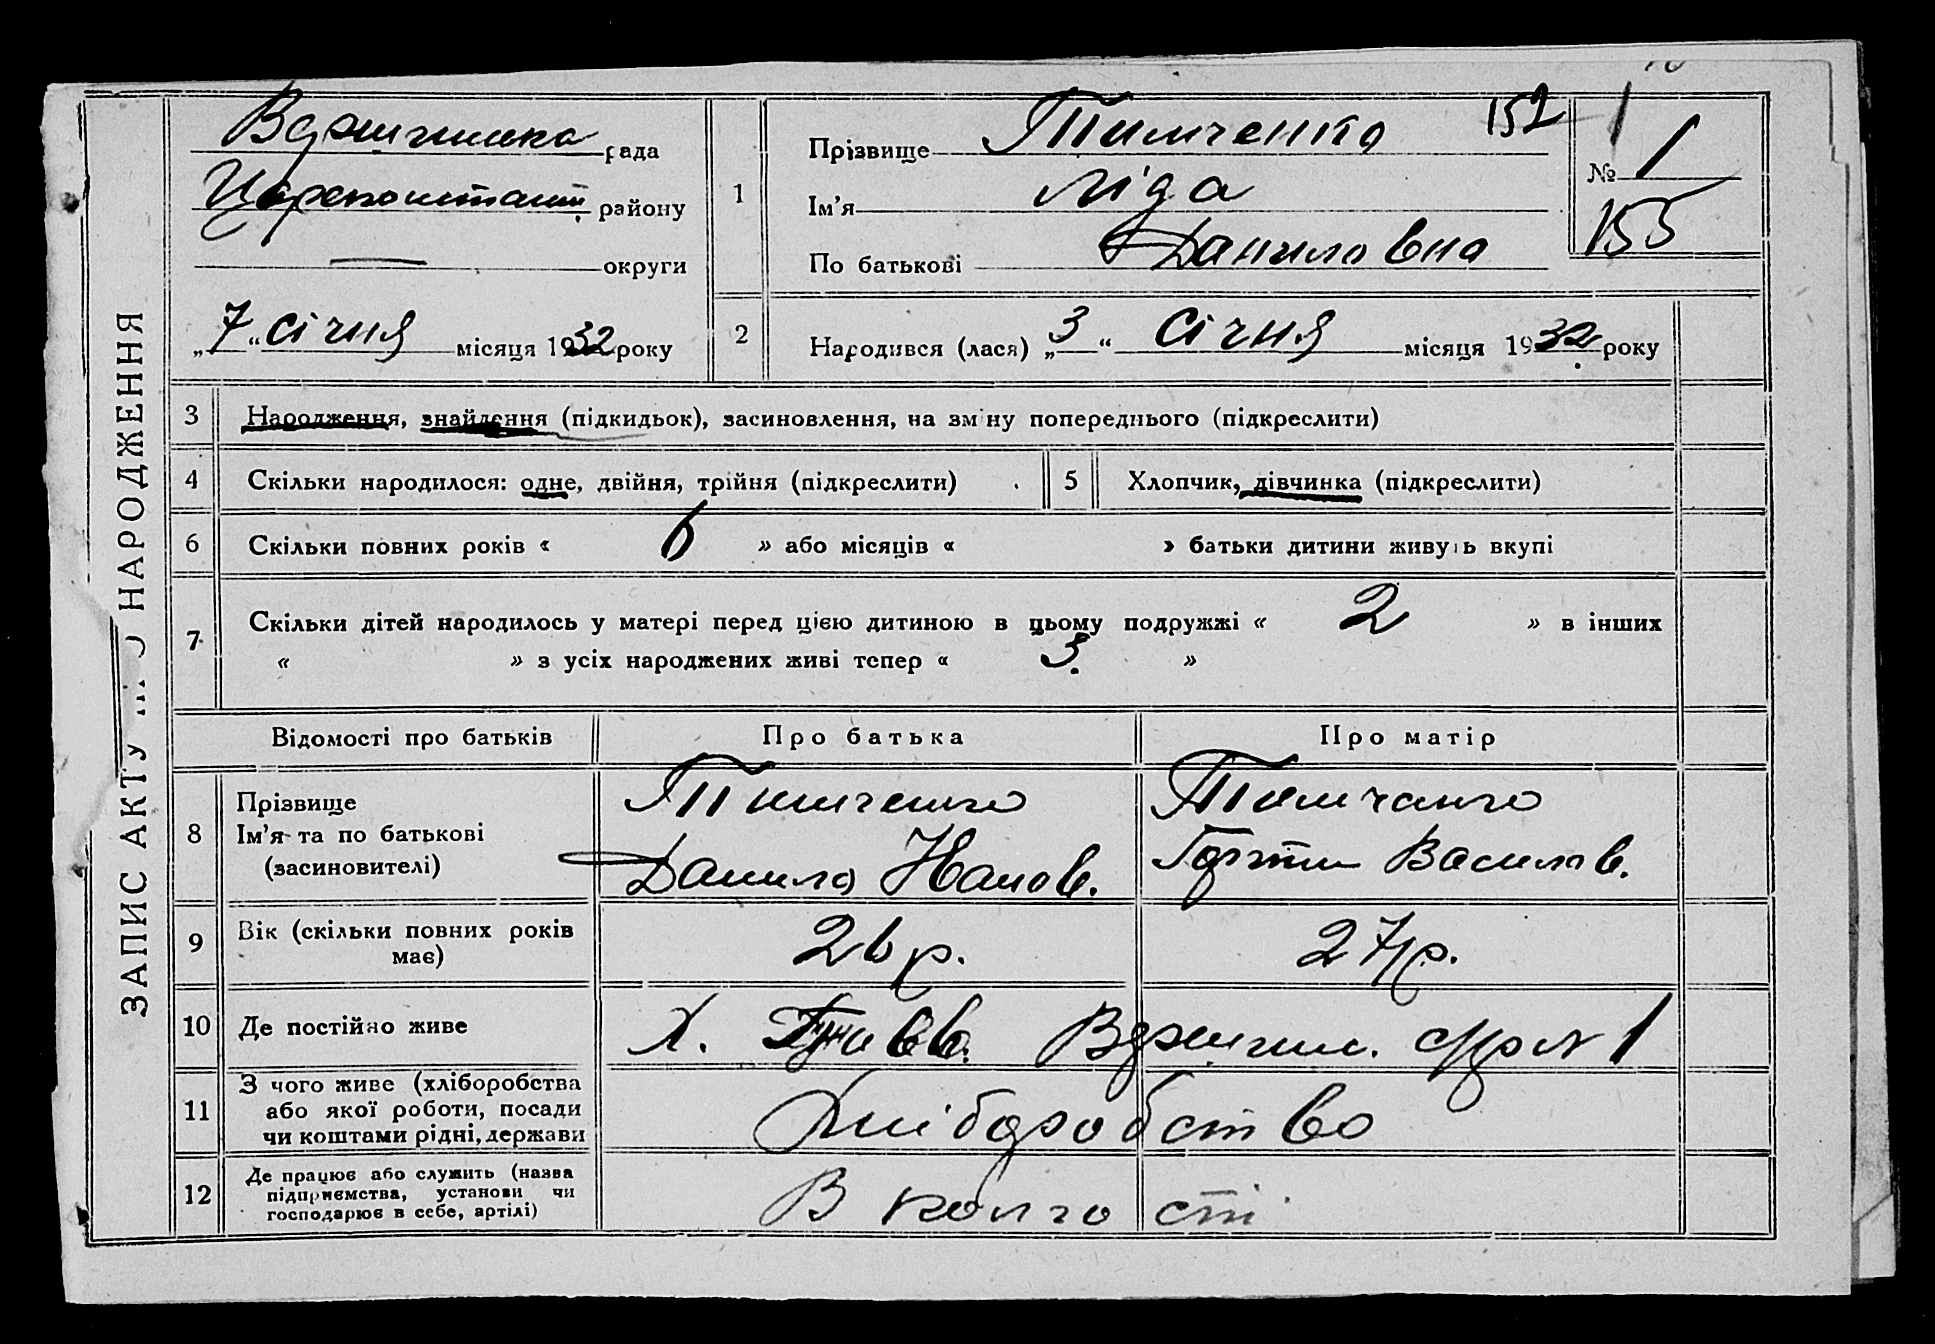 ЗАПИС АКТУ ПРО НАРОДЖЕННЯ
рада
Царекостант. району
— округи
„7“ січня місяця 1932 року
1
Прізвище Тимченко 152
Ім’я Ліда
По батькові Даниловна
1
№ 1
155
2
Народився (лася) „3“ січня місяця 1932 року
3 Народження, знайдення (підкидьок), засиновлення, на зміну попереднього (підкреслити)
4 Скільки народилося: одне, двійня, трійня (підкреслити)
5 Хлопчик, дівчинка (підкреслити)
6 Скільки повних років « 6 » або місяців « » батьки дитини живуть вкупі
7 Скільки дітей народилось у матері перед цією дитиною в цьому подружжі « 2 » в інших
« » з усіх народжених живі тепер « 3. »
Відомості про батьків Про батька Про матір
8
Прізвище
Ім’я та по батькові
(засиновителі)
Тимченко
Данило Иванов.
Тимченко
Василов.
9 Вік (скільки повних років
має)
26 р.
27 р.
10 Де постійно живе
Х. 1
11 З чого живе (хліборобства
або якої роботи, посади
чи коштами рідні, держави
Хліборобство
12 Де працює або служить (назва
підприємства, установи чи
господарює в себе, артілі)
В колгості